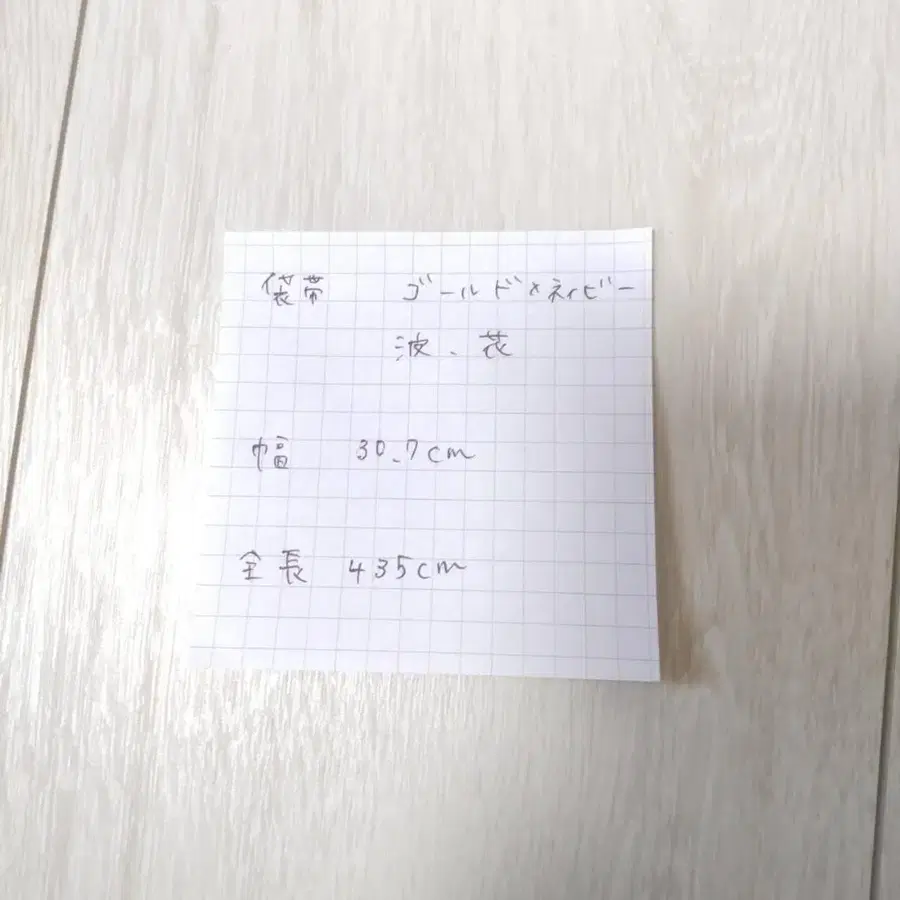 袋帯 ゴールド×ネイビー
波、花
幅 30.7cm
全長 435cm